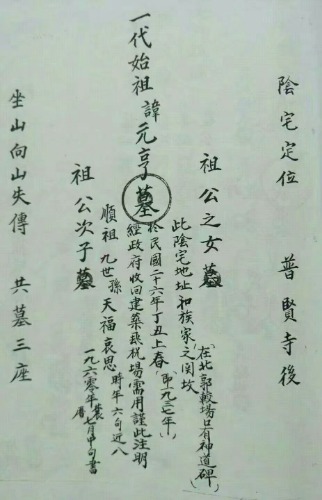 陰宅定位　普賢寺後
祖公之女墓
(在北郭較場旦有神道碑)
此陰宅地址和族家之関坟
於民國二十六年丁丑上春(即一九三七年)
經政府收回建築飛机場需用謹此注明
一代始祖諱元亨墓
順祖九世孫天福哀思 時年六旬近八
一九六零年農曆七月中旬書
祖公次子墓
坐山向山失傳　共墓三座